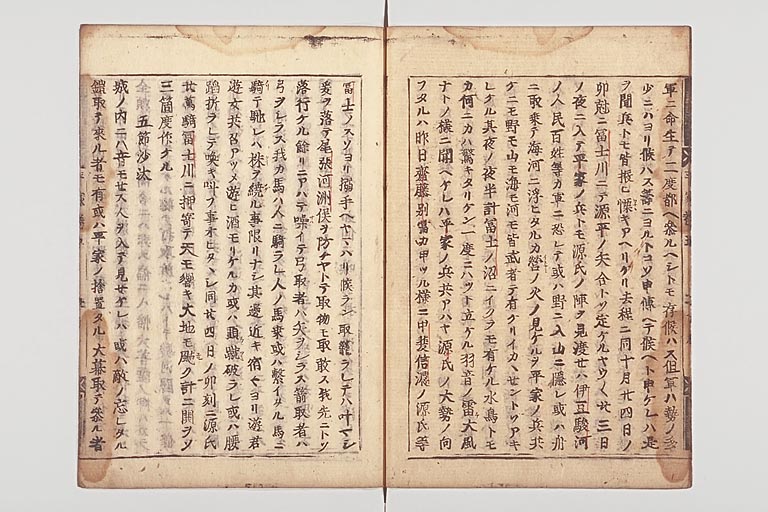 軍ニ命生テ二度都ヘ参ルヘシトモ存候ハス但軍ハ勢ノ多
少ニハヨリ候ハス籌ニヨルトコソ申傳ヘテ候ヘト申ケレハ是
ヲ聞兵トモ皆振ヒ懼キアヘリケリ去程ニ同十月廿四日ノ
卯尅ニ冨士川ニテ源平ノ矢合トソ定ケルヤウ〱廿三日
ノ夜ニ入テ平家ノ兵トモ源氏ノ陣ヲ見渡セハ伊豆駿河
ノ人民百姓等カ軍ニ恐レテ或ハ野ニ入山ニ隱レ或ハ舟
ニ取乗テ海河ニ浮ヒタルカ營ノ火ノ見ケルヲ平家ノ兵共
ケニモ野モ山モ海モ河モ皆武者テ有ケリイカヽセントソアキ
レケル其夜ノ夜半計冨士ノ沼ニイクラモ有ケル水鳥トモ
カ何ニカハ驚キタリケン一度ニハツト立ケル羽音ノ雷大風
ナトノ様ニ聞ヘケレハ平家ノ兵共アハヤ源氏ノ大勢ノ向
フタルハ昨日齋藤別當カ申ツル様ニ甲斐信濃ノ源氏等
冨士ノスソヨリ搦手ヘヤハリ候ラン取籠ラレテハ叶マシ
爰ヲ落テ尾張河洲俣ヲ防ケヤトテ取物モ取敢ス我先ニトソ
落行ケル餘リニアハテ噪イテ弓取者ハ矢ヲシラス箭取者ハ
弓ヲシラス我カ馬ハ人ニ騎ラレ人ノ馬ニ乗或ハ繋イタル馬ニ
騎テ馳レハ株ヲ繞ル事限リナシ其邊近キ宿々ヨリ遊君
遊女共召アツメ遊ヒ酒モリケルカ或ハ頭蹴破ラレ或ハ腰
蹈折ラレテ喚キ叫フ事ヲヒタヽシ同廿四日ノ卯刻ニ源氏
廿萬騎冨士川ニ押寄テ天モ響キ大地モ動ク計ニ鬨ヲソ
三箇度作ケル
五節沙汰
城ノ内ニハ音モセス人ヲ入テ見セケレハ或ハ敵ノ忘レタル
鎧取テ來ル者モ有或ハ平家ノ捨置タル大幕取テ参ル者